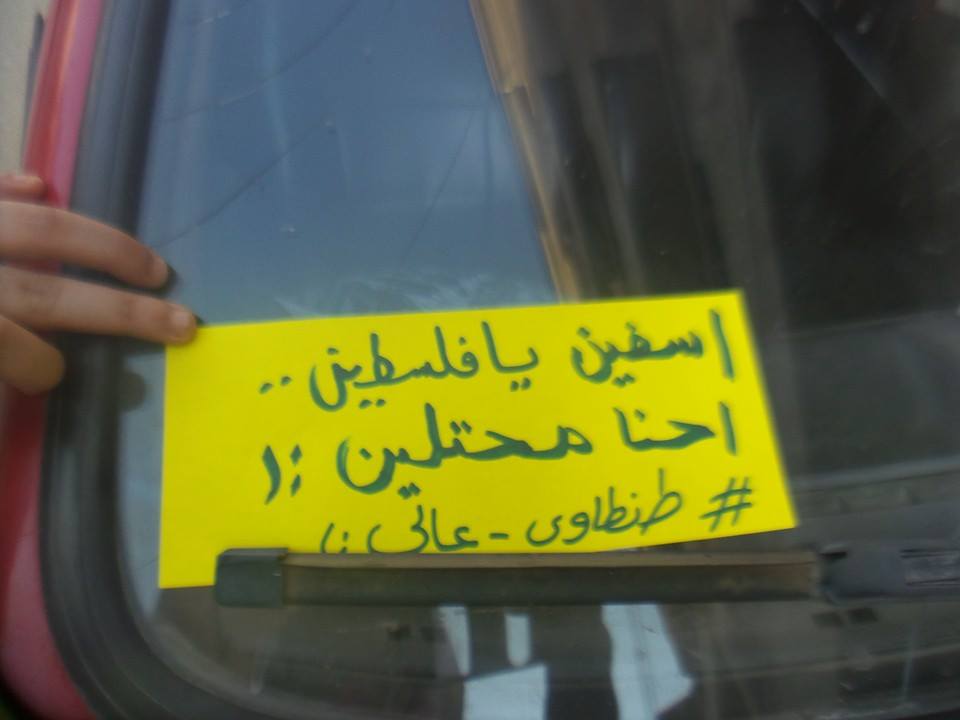 اسفين يا فلسطين ..
احنا محتلين :(
# طنطاوى - عاتى :(